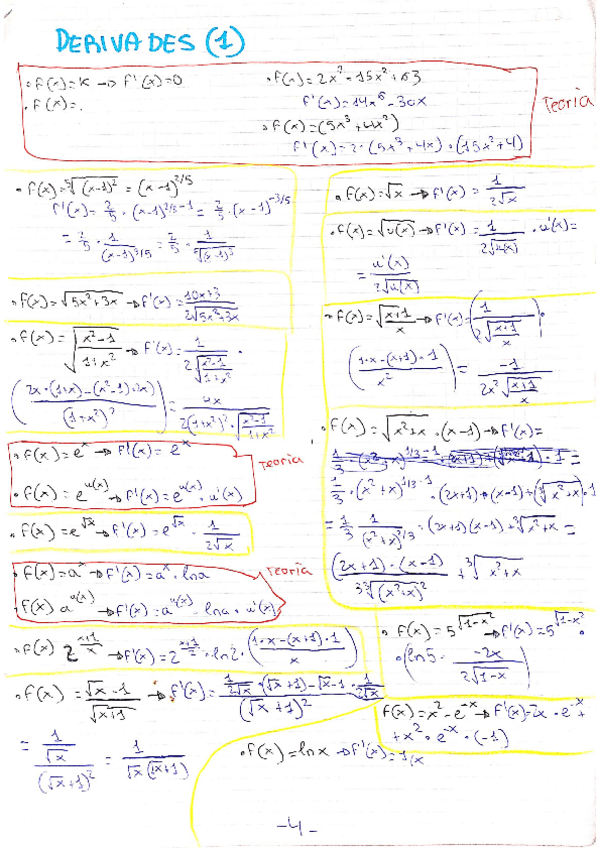 DERIVADES (1)
• f(x)=K → f'(x)=0
• f(x)=.
• f(x)=2x⁷-15x²+63
f'(x)=14x⁶-30x
• f(x)=(5x³+4x²)
f'(x)=2·(5x³+4x)·(15x²+4)
Teoria
• f(x)=⁵√(x-1)² = (x-1)^2/5
f'(x)=2/5·(x-1)^2/5-1 = 2/5·(x-1)^-3/5
= 2/5·1/(x-1)^3/5 = 2/5·1/⁵√(x-1)³
• f(x)=√x → f'(x)=1/2√x
• f(x)=√u(x) → f'(x)=1/2√u(x)·u'(x)=
= u'(x)/2√u(x)
• f(x)=√5x²+3x → f'(x)=10x+3/2√5x²+3x
• f(x)=√x+1/x → f'(x)=(1/2√x+1/x)·
(1·x-(x+1)·1/x²) = -1/2x²√x+1/x
• f(x)=√x²-1/1+x² → f'(x)=1/2√x²-1/1+x²·
(2x·(1+x)-(x²-1)·2x)/(1+x²)²) = 4x/2(1+x²)²·√x²-1/1+x²
• f(x)=√x²+x·(x-1) → f'(x)=
1/3·(x²+x)^1/3-1·(2x+1)·(x-1)+(³√x²+x)·1
= 1/3·1/(x²+x)^2/3·(2x+1)(x-1)+³√x²+x =
(2x+1)·(x-1)/3³√(x²+x)² + ³√x²+x
• f(x)=eˣ → f'(x)=eˣ
• f(x)=e^u(x) → f'(x)=e^u(x)·u'(x)
Teoria
• f(x)=e^√x → f'(x)=e^√x·1/2√x
• f(x)=aˣ → f'(x)=aˣ·lna
• f(x) a^u(x) → f'(x)=a^u(x)·lna·u'(x)
Teoria
• f(x) 2^x+1/x → f'(x)=2^x+1/x·ln2·(1·x-(x+1)·1/x)
• f(x)=5^√1-x² → f'(x)=5^√1-x²·
·(ln5·-2x/2√1-x)
• f(x) = √x-1/√x+1 → f'(x)=1/2√x·(√x+1)-√x-1·1/2√x/(√x+1)²
= 1/√x/(√x+1)² = 1/√x(√x+1)
f(x)=x²·e^-x → f'(x)=2x·e^-x+
+x²·e^-x·(-1)
• f(x)=lnx → f'(x)=1/x
-4-